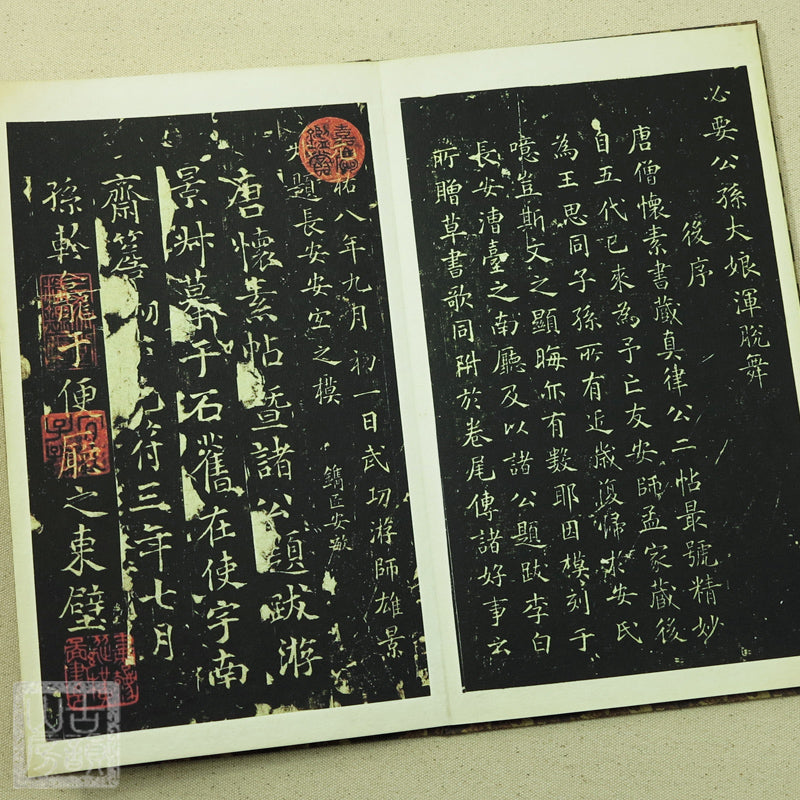 必要公孫大娘渾脫舞
後序
唐僧懷素書藏真律公二帖最號精妙
自五代已來為予亡友安師孟家藏後
為王思同子孫所有近歲復歸求安氏
噫豈斯文之顯晦亦有數耶因模刻于
長安漕臺之南廳及以諸公題跋李白
所贈草書歌同附於卷尾傳諸好事云
祐八年九月初一日武功游師雄景
題長安安宜之模
鐫匠安敏
唐懷素帖暨諸公題跋游
景叔摹于石舊在使宇南
齋簷元符三年七月
孫軫龕于便廳之東壁